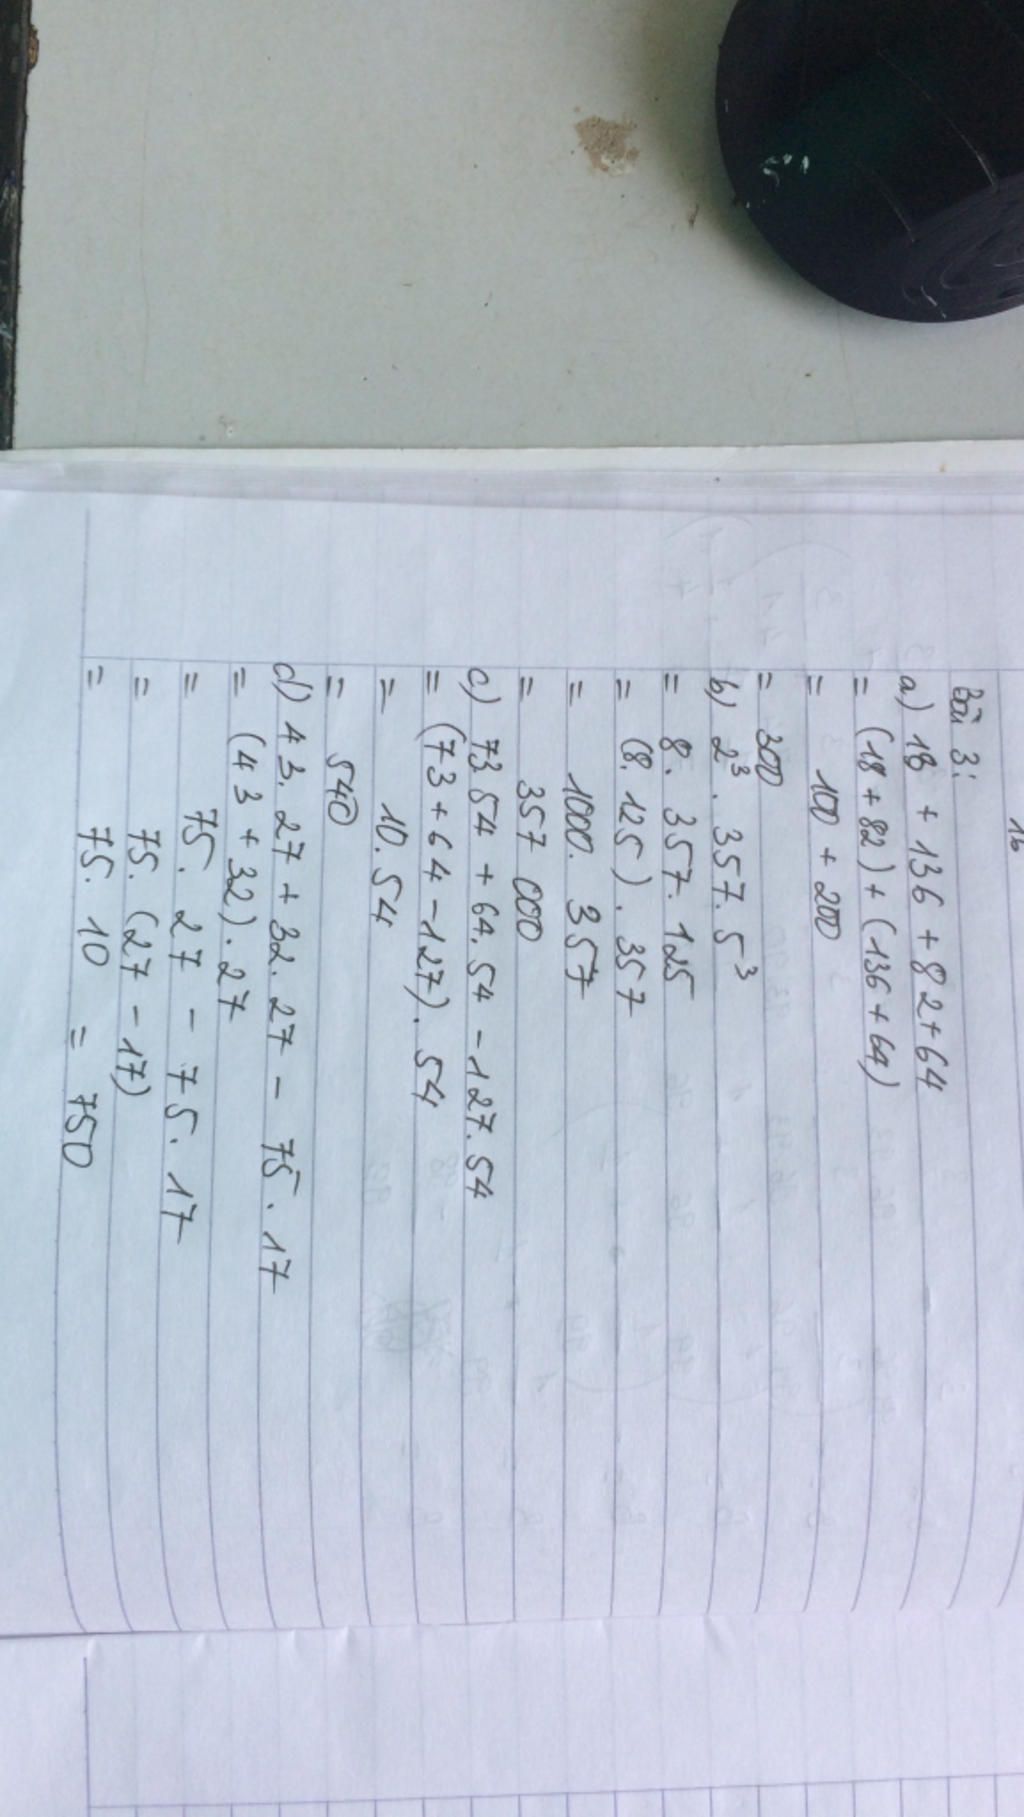 16
Bài 3:
a) 18 + 136 + 82 + 64
= (18 + 82) + (136 + 64)
= 100 + 200
= 300
b) 2³ . 357 . 5³
= 8 . 357 . 125
= (8 . 125) . 357
= 1000 . 357
= 357 000
c) 73.54 + 64.54 - 127.54
= (73 + 64 - 127) . 54
= 10 . 54
= 540
d) 43.27 + 32.27 - 75.17
= (43 + 32) . 27
= 75 . 27 - 75 . 17
= 75 . (27 - 17)
= 75 . 10 = 750